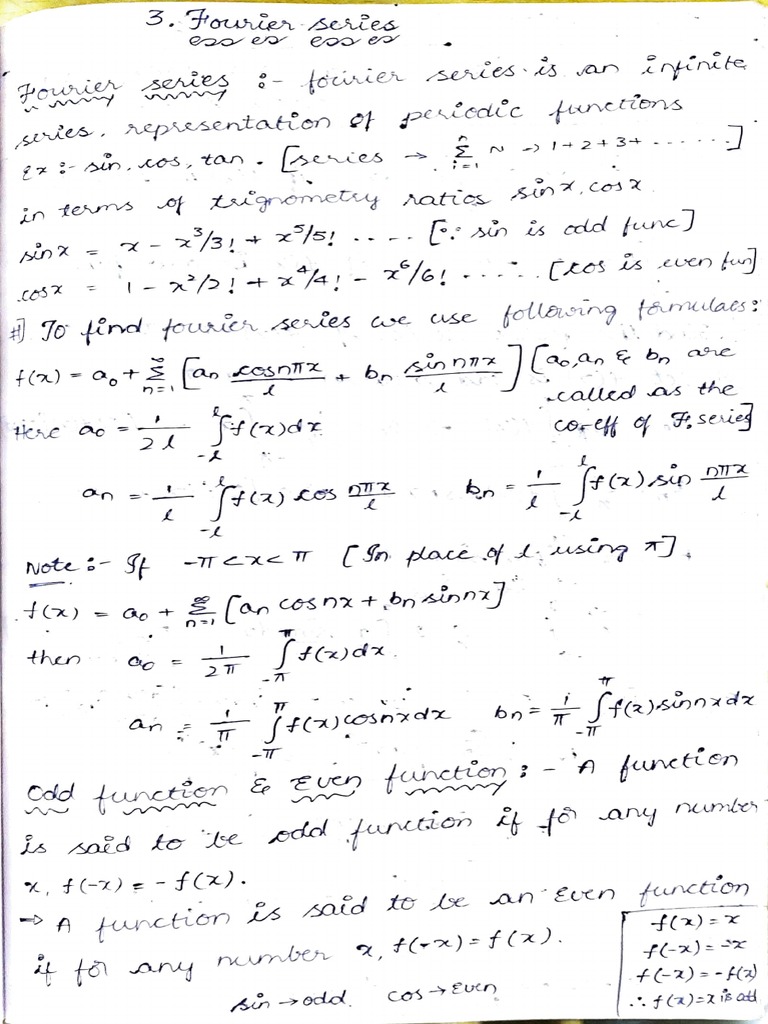 3. Fourier series
Fourier series :- fourier series is an infinite
series, representation of periodic functions
Ex :- sin, cos, tan. [series → n Σ i=1 N → 1+2+3+ ......]
in terms of trignometry ratios sinx, cosx
sinx = x - x³/3! + x⁵/5! ..... [∵ sin is odd func]
cosx = 1 - x²/2! + x⁴/4! - x⁶/6! ...... [cos is even fun]
#] To find fourier series we use following formulaes:
f(x) = a₀ + ∞ Σ n=1 [an cosnπx/l + bn sin nπx/l] [a₀, an & bn are
called as the
Here a₀ = 1/2l ∫_-l^l f(x)dx co-eff of F. series]
an = 1/l ∫_-l^l f(x) cos nπx/l , bn = 1/l ∫_-l^l f(x) sin nπx/l
Note :- If -π<x<π [In place of l using π].
f(x) = a₀ + ∞ Σ n=1 [an cosnx + bn sinnx]
then a₀ = 1/2π ∫_-π^π f(x)dx
an = 1/π ∫_-π^π f(x)cosnxdx bn = 1/π ∫_-π^π f(x)sinnxdx
Odd function & Even function :- A function
is said to be odd function if for any number
x, f(-x) = -f(x).
→ A function is said to be an Even function
if for any number x, f(-x) = f(x).
sin → odd. cos → Even
f(x) = x
f(-x) = -x
f(-x) = -f(x)
∴ f(x)=x is odd